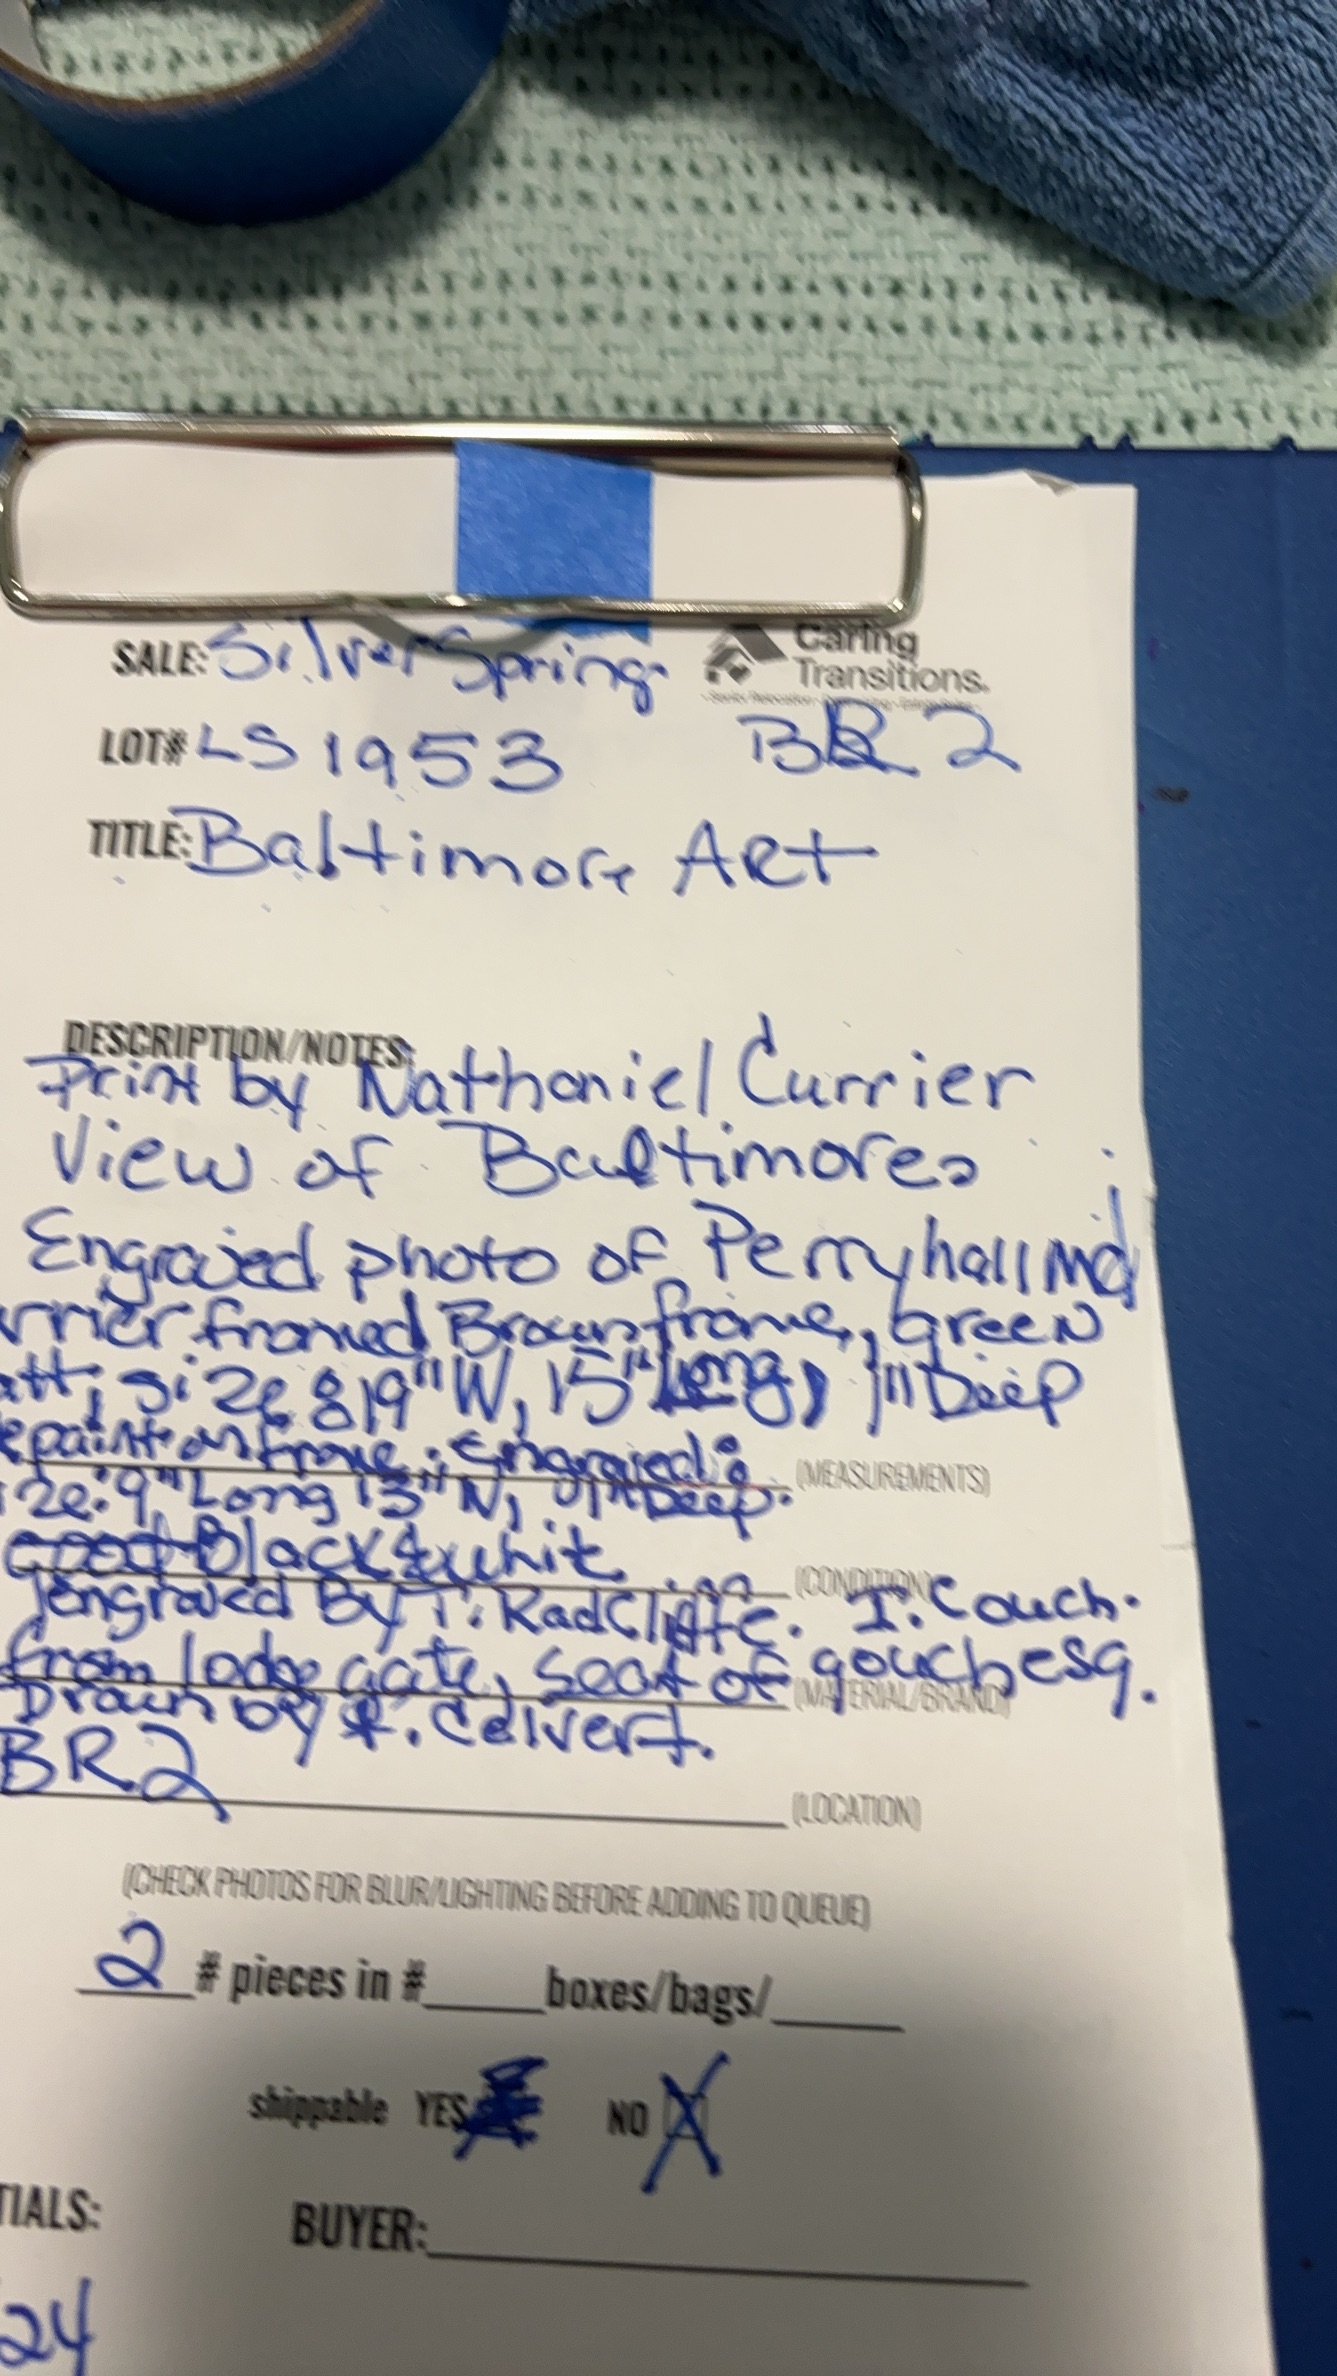 SALE: Silver Spring
Caring
Transitions.
LOT# LS 1953 BR 2
TITLE: Baltimore Art
DESCRIPTION/NOTES:
Print by Nathaniel Currier
View of Baltimore
Engraved photo of Perryhall Md
rrier framed Brown frame, Green
att, size 19" W, 15" Long, 1" Deep
paint on frame. Engraved:
ze: 9" Long 13" W, Deep.
(MEASUREMENTS)
good Black & whit
(CONDITION)
engraved By T. RadCliffe. I. Couch.
from lodge gate, Seat of gouch esq.
(MATERIAL/BRAND)
Drawn by Celvert.
BR2
(LOCATION)
(CHECK PHOTOS FOR BLUR/LIGHTING BEFORE ADDING TO QUEUE)
2 # pieces in # boxes/bags/
shippable YES NO X
TIALS:
BUYER:
24